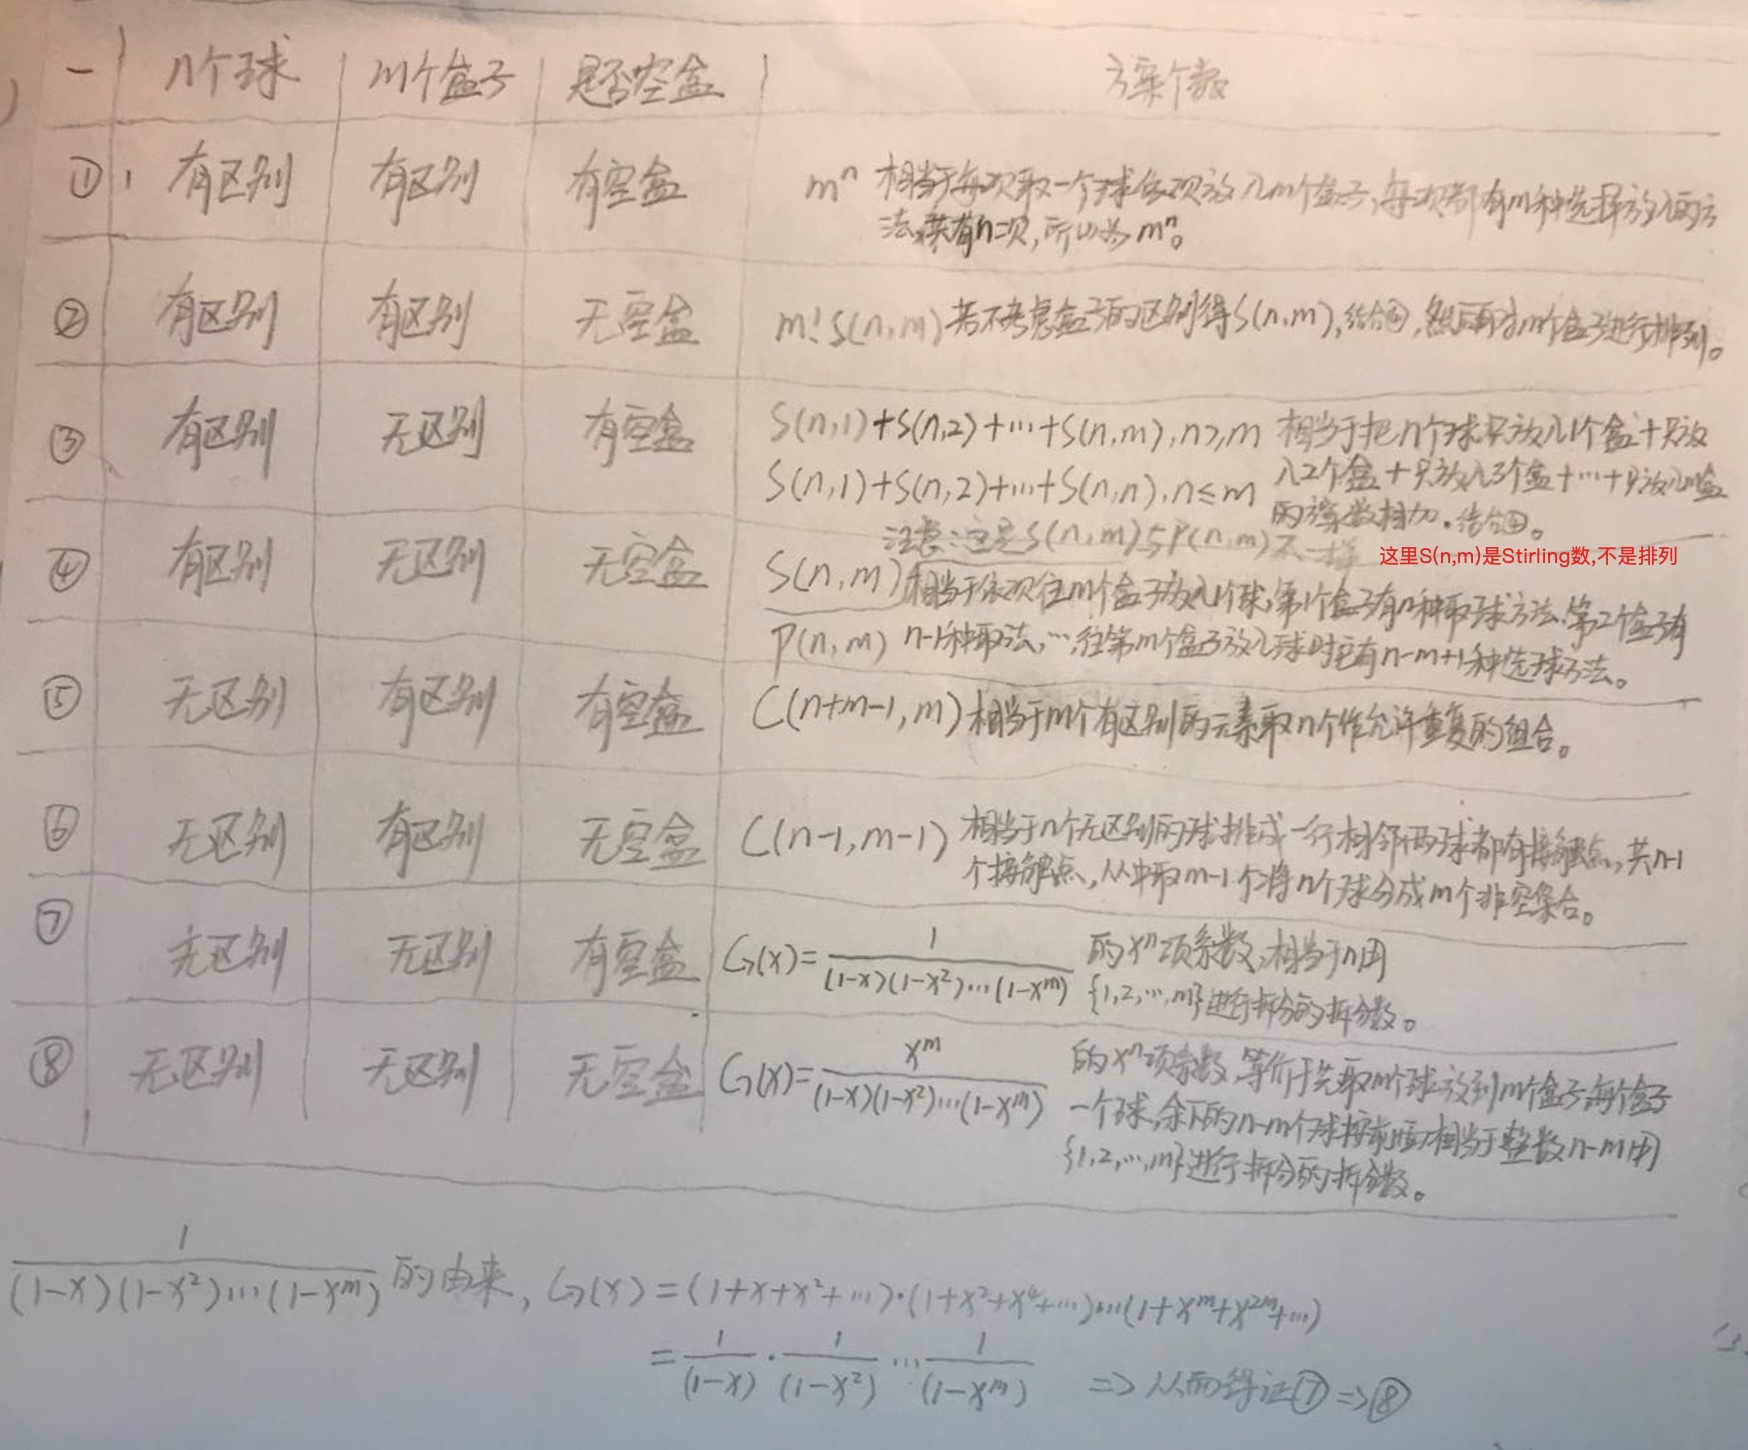 一 n个球 m个盒子 是否空盒 方案个数
① 有区别 有区别 有空盒 mⁿ 相当于每次取一个球依次放入m个盒子,每次都有m种选择放入的方
法,共有n次,所以为mⁿ。
② 有区别 有区别 无空盒 m!S(n,m) 若不考虑盒子的区别得S(n,m),结合④,然后再对m个盒子进行排列。
③ 有区别 无区别 有空盒 S(n,1)+S(n,2)+…+S(n,m),n≥m 相当于把n个球只放入1个盒+只放
S(n,1)+S(n,2)+…+S(n,n),n≤m 入2个盒+只放入3个盒+…+只放入m盒
的方案数相加。结合④。
注意:这是S(n,m)与P(n,m)不一样 这里S(n,m)是Stirling数,不是排列
④ 有区别 无区别 无空盒 S(n,m) 相当于依次往m个盒子放入1个球,第1个盒子有n种取球方法,第2个盒子有
P(n,m) n-1种取法,…,往第m个盒子放入球时已有n-m+1种选球方法。
⑤ 无区别 有区别 有空盒 C(n+m-1,m) 相当于m个有区别的元素取n个作允许重复的组合。
⑥ 无区别 有区别 无空盒 C(n-1,m-1) 相当于n个无区别的球排成一行相邻两球都有接触点,共n-1
个接触点,从中取m-1个将n个球分成m个非空集合。
⑦ 无区别 无区别 有空盒 G(x)=1/((1-x)(1-x²)…(1-xᵐ)) 的xⁿ项系数,相当于n用
{1,2,…,m}进行拆分的拆分数。
⑧ 无区别 无区别 无空盒 G(x)=xᵐ/((1-x)(1-x²)…(1-xᵐ)) 的xⁿ项系数,等价于先取m个球放到m个盒子每个盒子
一个球,余下的n-m个球按相当于整数n-m用
{1,2,…,m}进行拆分的拆分数。
1/((1-x)(1-x²)…(1-xᵐ)) 的由来, G(x)=(1+x+x²+…)·(1+x²+x⁴+…)…(1+xᵐ+x²ᵐ+…)
=1/(1-x)·1/(1-x²)…1/(1-xᵐ) => 从而得证⑦=>⑧